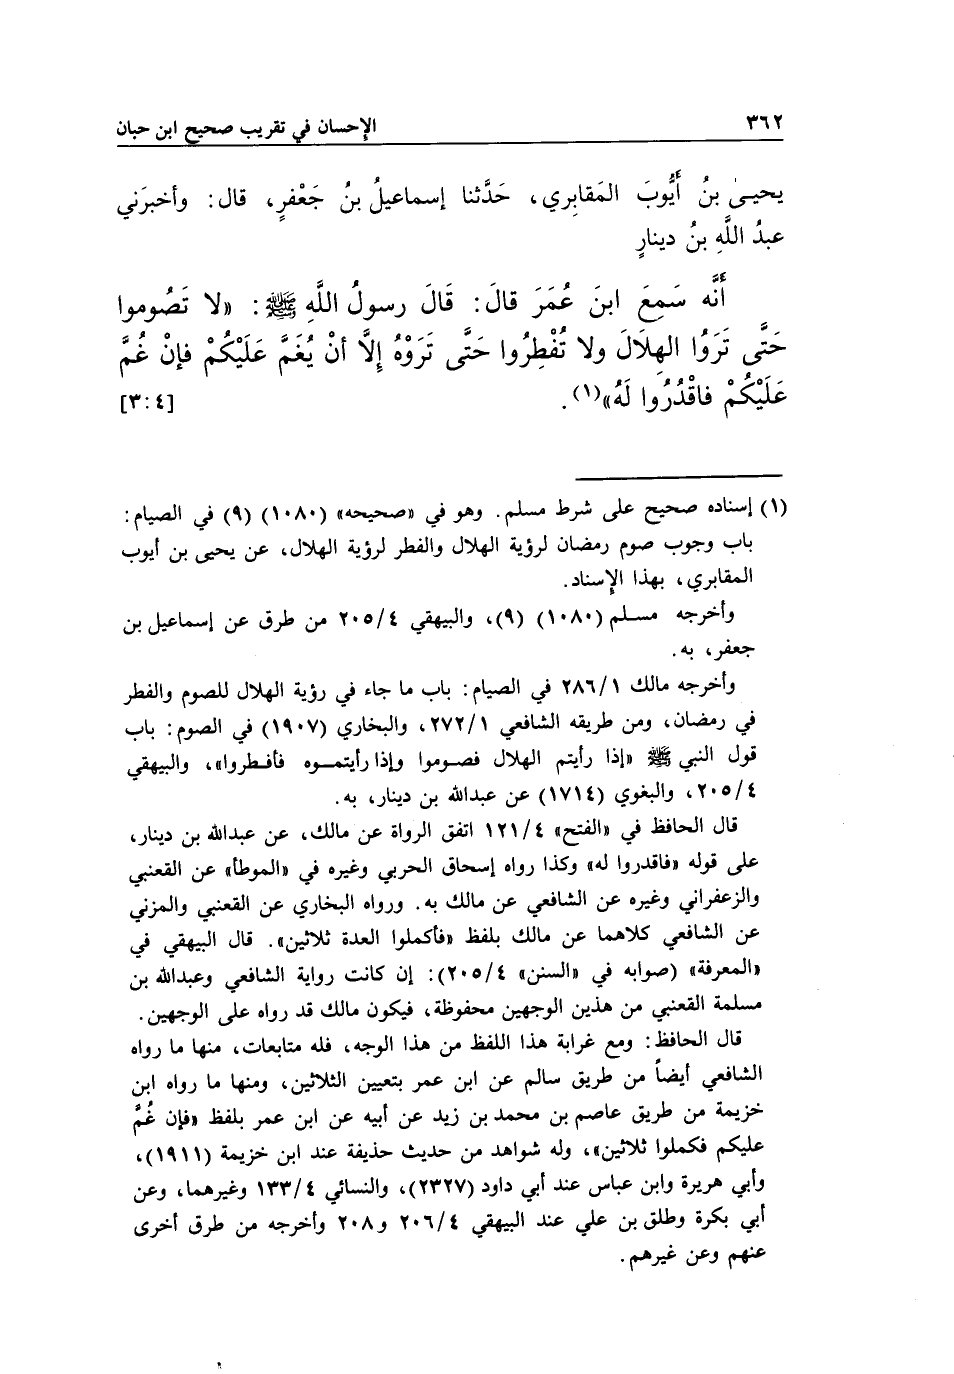 ٣٦٢
الإحسان في تقريب صحيح ابن حبان
يحيىٰ بنُ أَيُّوبَ المَقابِري، حَدَّثنا إسماعيلُ بنُ جَعْفرٍ، قال: وأخبرَني
عبدُ اللَّهِ بنُ دينارٍ
أنَّه سَمِعَ ابنَ عُمَرَ قالَ: قَالَ رسولُ اللَّهِ ﷺ: «لا تَصُوموا
حَتَّى تَرَوُا الهِلَالَ ولا تُفْطِرُوا حَتَّى تَرَوْهُ إِلَّا أنْ يُغَمَّ عَلَيْكُمْ فإنْ غُمَّ
عَلَيْكُمْ فاقْدُرُوا لَهُ»(١). [٣:٤]
(١) إسناده صحيح على شرط مسلم. وهو في «صحيحه» (١٠٨٠) (٩) في الصيام:
باب وجوب صوم رمضان لرؤية الهلال والفطر لرؤية الهلال، عن يحيى بن أيوب
المقابري، بهذا الإسناد.
وأخرجه مسلم (١٠٨٠) (٩)، والبيهقي ٢٠٥/٤ من طرق عن إسماعيل بن
جعفر، به.
وأخرجه مالك ٢٨٦/١ في الصيام: باب ما جاء في رؤية الهلال للصوم والفطر
في رمضان، ومن طريقه الشافعي ٢٧٢/١، والبخاري (١٩٠٧) في الصوم: باب
قول النبي ﷺ «إذا رأيتم الهلال فصوموا وإذا رأيتموه فأفطروا»، والبيهقي
٢٠٥/٤، والبغوي (١٧١٤) عن عبدالله بن دينار، به.
قال الحافظ في «الفتح» ١٢١/٤ اتفق الرواة عن مالك، عن عبدالله بن دينار،
على قوله «فاقدروا له» وكذا رواه إسحاق الحربي وغيره في «الموطأ» عن القعنبي
والزعفراني وغيره عن الشافعي عن مالك به. ورواه البخاري عن القعنبي والمزني
عن الشافعي كلاهما عن مالك بلفظ «فأكملوا العدة ثلاثين». قال البيهقي في
«المعرفة» (صوابه في «السنن» ٢٠٥/٤): إن كانت رواية الشافعي وعبدالله بن
مسلمة القعنبي من هذين الوجهين محفوظة، فيكون مالك قد رواه على الوجهين.
قال الحافظ: ومع غرابة هذا اللفظ من هذا الوجه، فله متابعات، منها ما رواه
الشافعي أيضاً من طريق سالم عن ابن عمر بتعيين الثلاثين، ومنها ما رواه ابن
خزيمة من طريق عاصم بن محمد بن زيد عن أبيه عن ابن عمر بلفظ «فإن غُمَّ
عليكم فكملوا ثلاثين»، وله شواهد من حديث حذيفة عند ابن خزيمة (١٩١١)،
وأبي هريرة وابن عباس عند أبي داود (٢٣٢٧)، والنسائي ١٣٣/٤ وغيرهما، وعن
أبي بكرة وطلق بن علي عند البيهقي ٢٠٦/٤ و٢٠٨ وأخرجه من طرق أخرى
عنهم وعن غيرهم.